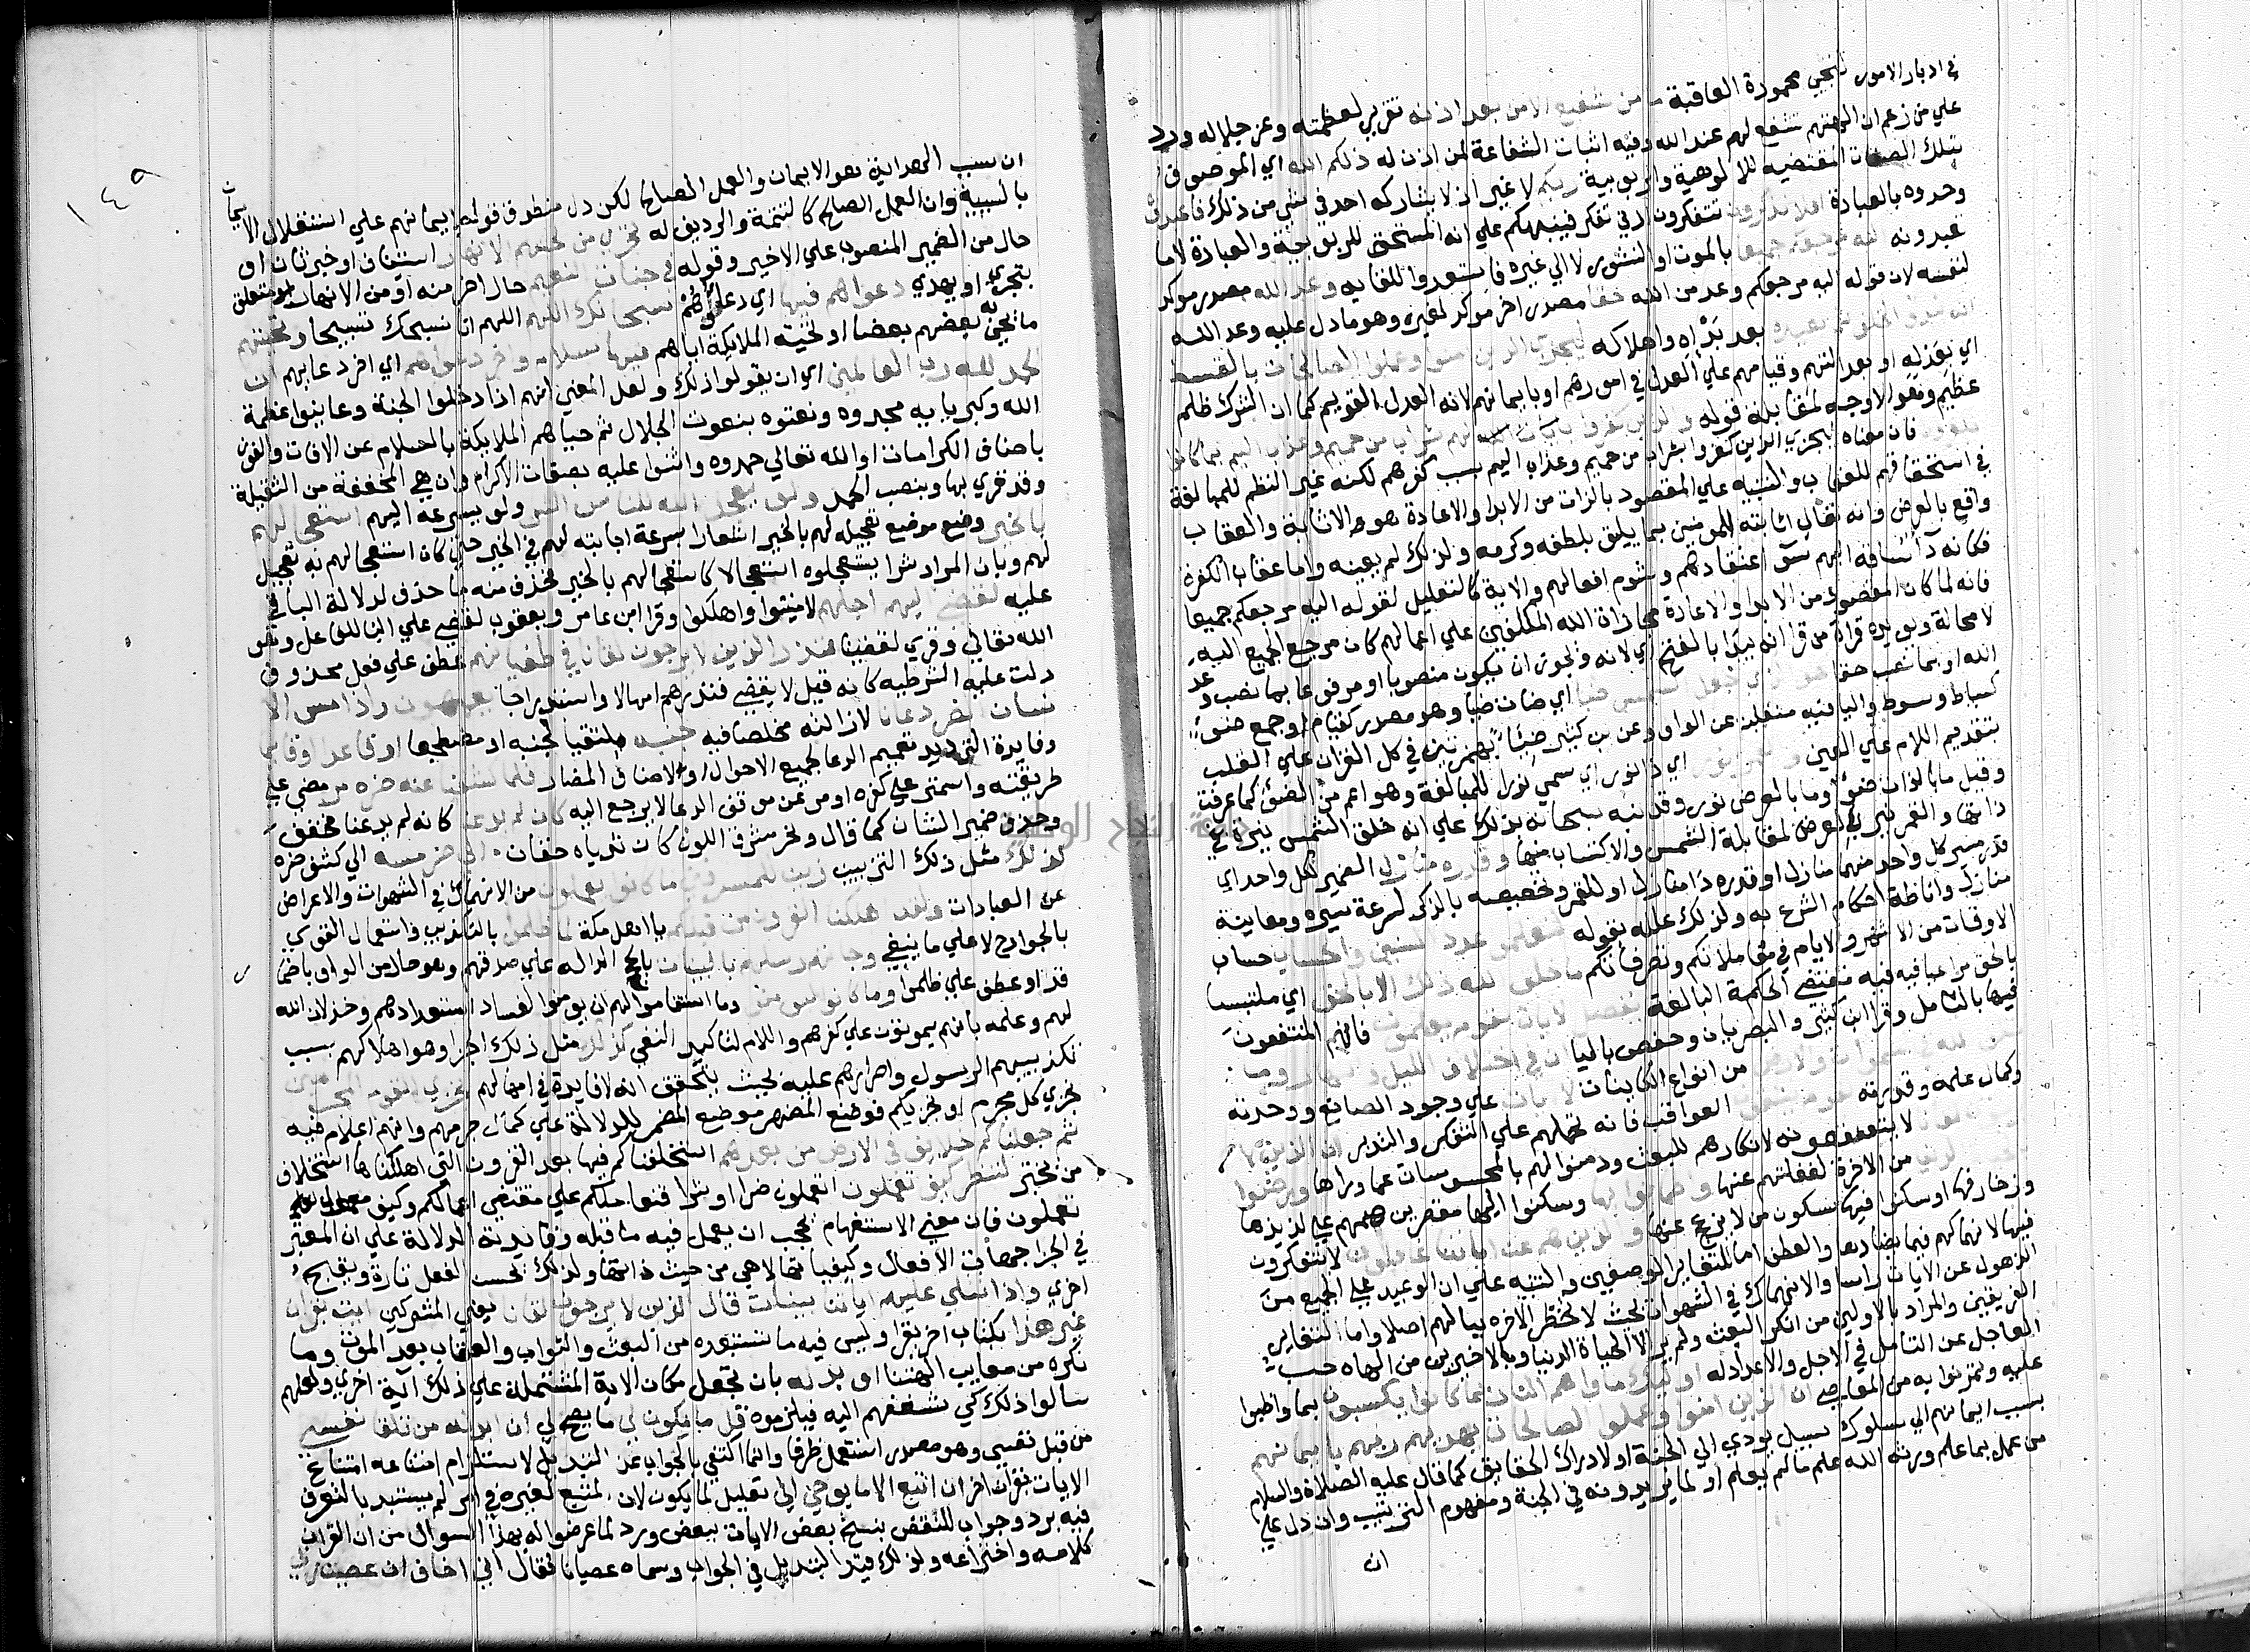 في ادبار الامور لتجيي محمودة العاقبة ما من شفيع الا من بعد اذنه تقرير لعظمته وعز جلاله ورد
علي من زعم ان الهتهم تشفع لهم عند الله وفيه اثبات الشفاعة لمن اذن له ذلكم الله اي الموصوف
بتلك الصفات المقتضيه للالوهية والربوبية ربكم لا غير اذ لا يشاركه احد في شي من ذلك فاعبدوه
وحدوه بالعبادة افلا تذكرون تتفكرون ادني تفكر فينبهكم علي انه المستحق للربوبية والعبادة لا ما
تعبدونه اليه مرجعكم جميعا بالموت او النشور لا الي غيره فاستعدوا للقايه وعد الله مصدر موكد
لنفسه لان قوله اليه مرجعكم وعد من الله حقا مصدر اخر موكد لغيره وهو ما دل عليه وعد الله
انه يبدؤ الخلق ثم يعيده بعد بدءه واهلاكه ليجزي الذين امنوا وعملوا الصالحات بالقسط
اي بعدله او بعدالتهم وقيامهم علي العدل في امورهم او بايمانهم لانه العدل القويم كما ان الشرك ظلم
عظيم وهو الاوجه لمقابلة قوله والذين كفروا لهم شراب من حميم وعذاب اليم بما كانوا
يكفرون فان معناه ليجزي الذين كفروا بشراب من حميم وعذاب اليم بسبب كفرهم لكنه غير النظم للمبالغة
في استحقاقهم للعقاب والتنبيه علي المقصود بالذات من الابدا والاعادة هو الاثابة والعقاب
واقع بالعرض وانه تعالي اثابته المومنين بما يليق بلطفه وكرمه ولذلك لم يعينه واما عقاب الكفرة
فكانه داء ساقه اليهم سو اعتقادهم وشوم افعالهم والاية كالتعليل لقوله اليه مرجعكم جميعا
فانه لما كان المقصود من الابدا والاعادة مجازاة الله المكلفين علي اعمالهم كان مرجع الجميع اليه
لا محالة ويويده قراة من قرا انه يبدا بالفتح اي لانه ويجوز ان يكون منصوبا او مرفوعا بما نصب وعد
الله او بما نصب حقا هو الذي جعل الشمس ضيا اي ذات ضيا وهو مصدر كقيام او جمع ضوء
كسياط وسوط واليا فيه منقلبه عن الواو وعن بن كثير ضئا بهمزتين في كل القران علي القلب
بتقديم اللام علي العين والقمر نورا اي ذا نور او سمي نورا للمبالغة وهو اعم من الضوء كما عرفت
وقيل ما بالذات ضوء وما بالعرض نور وقد نبه سبحانه بذلك علي انه خلق الشمس نيرة في
ذاتها والقمر نيرا بالعرض لمقابلة الشمس والاكتساب منها وقدره منازل الضمير لكل واحد اي
قدر مسير كل واحد منهما منازل او قدره ذا منازل او للقمر وتخصيصه بالذكر لسرعة سيره ومعاينة
منازله واناطة احكام الشرع به ولذلك علله بقوله لتعلموا عدد السنين والحساب حساب
الاوقات من الاشهر والايام في معاملاتكم وتصرفاتكم ما خلق الله ذلك الا بالحق اي ملتبسا
بالحق مراعيا فيه مقتضي الحكمة البالغة نفصل الايات لقوم يعلمون فانهم المنتفعون
فيها بالتامل وقرا ابن كثير والبصريان وحفص باليا ان في اختلاف الليل والنهار وما
خلق الله في السموات والارض من انواع الكاينات لايات علي وجود الصانع ووحدته
وكمال علمه وقدرته لقوم يتقون العواقب فانه يحملهم علي التفكر والتدبر ان الذين لا
يرجون لقانا لا يتوقعونه لانكارهم للبعث وذهولهم بالمحسوسات عما وراها ورضوا
بالحياة الدنيا من الاخرة لغفلتهم عنها واطمانوا بها وسكنوا اليها مقصرين هممهم علي لذيذها
وزخارفها او سكنوا فيها سكون من لا يزعج عنها والذين هم عن اياتنا غافلون لا يتفكرون
فيها لانهماكهم فيما يضادها والعطف اما لتغاير الوصفين والتنبيه علي ان الوعيد علي الجمع من
الذهول عن الايات راسا والانهماك في الشهوات بحيث لا تخطر الاخره ببالهم اصلا واما لتغاير
الفريقين والمراد بالاولين من انكر البعث ولم ير الا الحياة الدنيا وبالاخرين من الهاه حب
العاجل عن التامل في الاجل والاعداد له اوليك ماواهم النار بما كانوا يكسبون بما واظبوا
عليه وتمرنوا به من المعاصي ان الذين امنوا وعملوا الصالحات يهديهم ربهم بايمانهم
بسبب ايمانهم الي سلوك سبيل يودي الي الجنة او لادراك الحقايق كما قال عليه الصلاة والسلام
من عمل بما علم ورثه الله علم ما لم يعلم او لما يريدونه في الجنة ومفهوم الترتيب وان دل علي
ان
١٤٩
ان سبب الهداية هو الايمان والعمل الصالح لكن دل منطوق قوله بايمانهم علي استقلال الايمان
بالسببية وان العمل الصالح كالتتمة والرديف له تجري من تحتهم الانهار استيناف او خبر ثان او
حال من الضمير المنصوب علي الاخير وقوله في جنات النعيم خبر او حال اخر منه او من الانهار او متعلق
بتجري او يهدي دعواهم فيها اي دعاؤهم سبحانك اللهم اللهم انا نسبحك تسبيحا وتحيتهم
ما يحيي به بعضهم بعضا او تحية الملايكة اياهم فيها سلام واخر دعواهم اي اخر دعايهم ان
الحمد لله رب العالمين اي ان يقولوا ذلك ولعل المعني انهم اذا دخلوا الجنة وعاينوا عظمة
الله وكبرياءه مجدوه ونعتوه بنعوت الجلال ثم حياهم الملايكة بالسلام عن الافات والفوز
باصناف الكرامات او الله تعالي حمدوه واثنوا عليه بصفات الاكرام وان هي المخففة من الثقيلة
وقد قري بها وبنصب الحمد ولو يعجل الله للناس الشر ولو يسرعه اليهم استعجالهم
بالخير وضع موضع تعجيله لهم بالخير اشعارا بسرعة اجابته لهم في الخير حتي كان استعجالهم به تعجيل
لهم وبان المراد شرا يستعجلوه استعجالا كاستعجالهم بالخير فحذف منه ما حذف لدلالة الباقي
عليه لقضي اليهم اجلهم لاميتوا واهلكوا وقرا ابن عامر ويعقوب لقضي علي البنا للفاعل وهو
الله تعالي وقري لقضينا فنذر الذين لا يرجون لقانا في طغيانهم عطف علي فعل محذوف
دلت عليه الشرطيه كانه قيل لا يقضي فنذرهم امهالا واستدراجا يعمهون واذا مس الا
نسان الضر دعانا لازالته مخلصا فيه لجنبه ملقيا لجنبه او مضطجعا او قاعدا او قايما
وفايدة الترديد تعميم الدعا لجميع الاحوال او لاصناف المضار فلما كشفنا عنه ضره مر مضي علي
طريقته واستمر علي كفره او مر عن موقف الدعا لا يرجع اليه كان لم يدعنا كانه لم يدعنا فخفف
وحذف ضمير الشان كما قال ونحر مشرق اللون كان ثدياه حقان الي ضر مسه الي كشف ضره
كذلك مثل ذلك التزيين زين للمسرفين ما كانوا يعملون من الانهماك في الشهوات والاعراض
عن العبادات ولقد اهلكنا القرون من قبلكم يا اهل مكة لما ظلموا بالتكذيب واستعمال القوي
بالجوارح لا علي ما ينبغي وجاتهم رسلهم بالبينات بالحجج الدالة علي صدقهم وهو حال من الواو باضمار
قد او عطف علي ظلموا وما كانوا ليومنوا وما استقاموا لهم ان يومنوا لفساد استعدادهم وخذلان الله
لهم وعلمه بانهم يموتون علي كفرهم واللام لتاكيد النفي كذلك مثل ذلك الجزا وهو اهلاكهم بسبب
تكذيبهم الرسول واصرارهم عليه بحيث يتحقق انه لا فايدة في امهالهم نجزي القوم المجرمين
نجزي كل مجرم او نجزيكم فوضع المظهر موضع المضمر للدلالة علي كمال جرمهم وانهم اعلام فيه
ثم جعلناكم خلايف في الارض من بعدهم استخلفناكم فيها بعد القرون التي اهلكناها استخلاف
من يختبر لننظر كيف تعملون اتعملون خيرا او شرا فنعاملكم علي مقتضي اعمالكم وكيف معمول
تعملون فان معني الاستفهام يحجب ان يعمل فيه ما قبله وفايدته الدلالة علي ان المعتبر
في الجزا جهات الافعال وكيفياتها لا هي من حيث ذاتها ولذلك يحسن الفعل تارة ويقبح
اخري واذا تتلي عليهم اياتنا بينات قال الذين لا يرجون لقانا يعني المشركين ايت بقران
غير هذا بكتاب اخر نقراه ليس فيه ما نستبعده من البعث والثواب والعقاب بعد الموت وما
نكره من معايب الهتنا او بدله بان تجعل مكان الاية المشتملة علي ذلك آية اخري ولعلهم
سالوا ذلك كي يسعفهم اليه فيلزموه قل ما يكون لي ما يصح لي ان ابدله من تلقا نفسي
من قبل نفسي وهو مصدر استعمل ظرفا وانما اكتفي بالجواب عن التبديل لاستلزام امتناعه امتناع
الايات بقران اخر ان اتبع الا ما يوحي الي تعليل لما يكون لان المتبع لغيره في امر لم يستبد بالتصرف
فيه برد وجواب للنقض بنسخ بعض الايات ببعض ورد لما عرضوا له بهذا السوال من ان القران
كلامه واختراعه ولذلك قيد التبديل في الجواب وسماه عصيانا فقال اني اخاف ان عصيت ربي